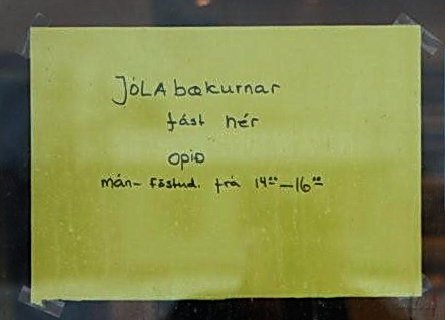 JÓLA bækurnar
fást hér
opið
mán- föstud. frá 14⁰⁰-16⁰⁰